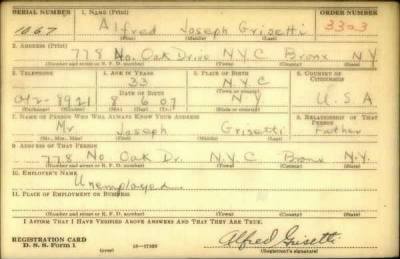 SERIAL NUMBER 1. NAME (Print) ORDER NUMBER
1067 Alfred Joseph Grisetti 3303
2. ADDRESS (Print)
778 No. Oak Drive N.Y.C Bronx N.Y
(Number and street or R. F. D. number) (Town) (County) (State)
3. TELEPHONE 4. AGE IN YEARS 5. PLACE OF BIRTH 6. COUNTRY OF CITIZENSHIP
33 N.Y.C
DATE OF BIRTH
8921 8 6 07 N.Y U.S.A
(Exchange) (Number) (Mo.) (Day) (Yr.) (State or country)
7. NAME OF PERSON WHO WILL ALWAYS KNOW YOUR ADDRESS 8. RELATIONSHIP OF THAT PERSON
Mr Joseph Grisetti Father
(Mr., Mrs., Miss) (First) (Middle) (Last)
9. ADDRESS OF THAT PERSON
778 No Oak Dr. N.Y.C Bronx N.Y.
(Number and street or R. F. D. number) (Town) (County) (State)
10. EMPLOYER'S NAME
Unemployed
11. PLACE OF EMPLOYMENT OR BUSINESS
(Number and street or R. F. D. number) (Town) (County) (State)
I AFFIRM THAT I HAVE VERIFIED ABOVE ANSWERS AND THAT THEY ARE TRUE.
REGISTRATION CARD
D. S. S. Form 1 (over) Alfred Grisetti
(Registrant's signature)